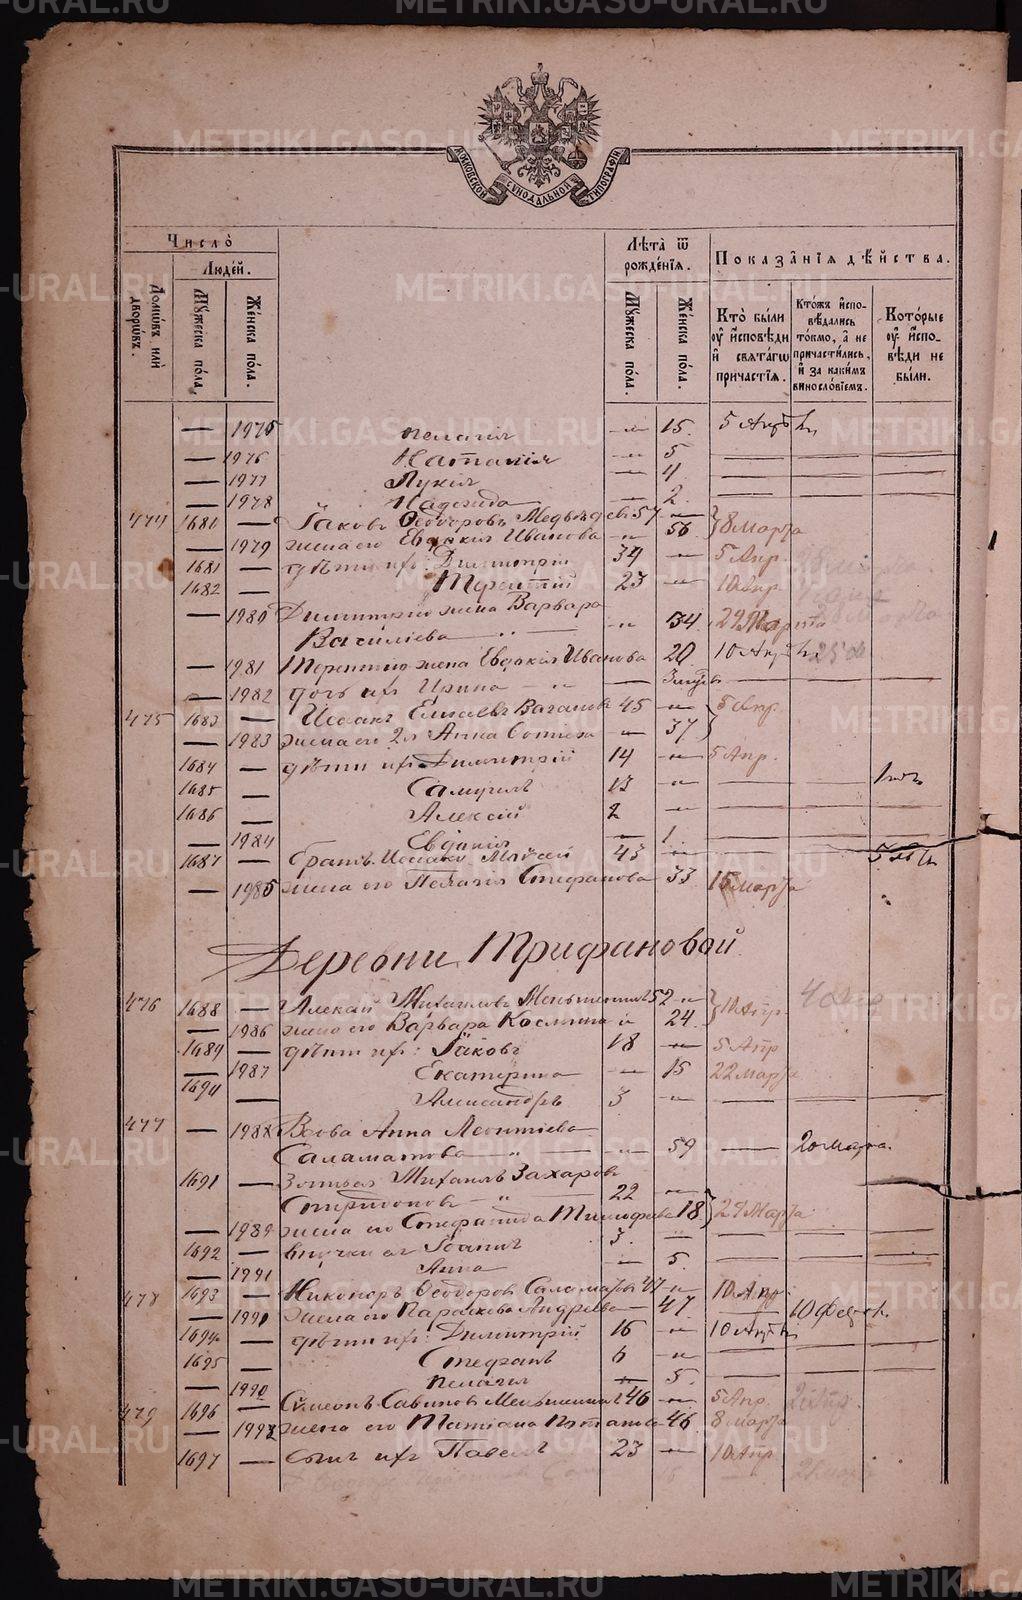 METRIKI.GASO-URAL.RU
МОСКОВСКОЙ СѴНОДАЛЬНОЙ ТИПОГРАФІИ
Число̀
Людéй.
Домѡ́въ, илѝ дворѡ́въ.
Мꙋ́жеска по́ла.
Же́нска по́ла.
Лѣ́та ѿ рожде́нїѧ.
Мꙋ́жеска по́ла.
Же́нска по́ла.
Показа̑нїѧ дѣ́йства.
Кто̀ бы́ли ᲂу҆ и҆сповѣ́ди и҆ свѧта́гѡ прича́стїѧ.
Кто́жъ и҆спо- вѣ́дались то́кмо, а҆ не причасти́лись, и҆ за каки́мъ винослові́емъ.
Кото́рые ᲂу҆ и҆спо- вѣ́ди не бы́ли.
— 1975 Пелагія — 15. 5 Апрѣл
— 1976 Наталія — 5
— 1977 Лукія — 4
— 1978 Надежда — 2
474 1680 — Іаковъ Ѳеодоровъ Медвѣдевъ 57 — 8 Марта
— 1979 жена его Евдокія Иванова — 56
1681 — дѣти ихъ: Димитрій 34 — 5 Апр.
1682 — Терентій 23 — 10 Апр.
— 1980 Димитрія жена Варвара
Васильева — 34 29 Марта
— 1981 Терентія жена Евдокія Иванова 20 10 Апрѣл
— 1982 дочь ихъ Ирина —
475 1683 — Исаакъ Елисѣевъ Ваганов 45 — 5 Апр.
— 1983 жена его 2я Анна — 37
1684 — дѣти ихъ Димитрій 14 — 5 Апр.
1685 — Самуилъ 13 —
1686 — Алексій 2 —
— 1984 Евдокія — 1
1687 — братъ Исаака Моисей 43 —
— 1985 жена его Пелагія Стефанова 33 15 Марта
Деревни Трифановой
476 1688 — Алексій Михаиловъ Меньшенинъ 52 — 10 Апр. 4 Апр
— 1986 жена его Варвара Космина — 24
1689 — дѣти ихъ: Іаковъ 18 — 5 Апр
— 1987 Екатерина — 15 22 Марта
1690 — Александръ 3 —
477 — 1988 Вдова Анна Леонтіева
Саламатова — 59 — 20 Марта.
1691 — Зять ея Михаилъ Захаров
Спиридонов — 22 — 29 Марта
— 1989 жена его Стефанида Тимофеева 18
1692 — внучки ея Іоаннъ 3. —
— 1991 Анна — 5.
478 1693 — Никоноръ Ѳеодоров Саломатов 47 — 10 Апр.
— 1990 Жена его Параскева Андреева — 47 — 10 Феврал.
1694 — дѣти ихъ: Димитрій 16 — 10 Апрѣл
1695 — Стефанъ 6 —
— 1990 Пелагія — 5.
479 1696 — Симеонъ Савиновъ Меньшенинъ 46 — 5 Апр.
— 1992 жена его Татіана 46 8 Марта
1697 — сынъ ихъ Павелъ 23 — 10 Апр